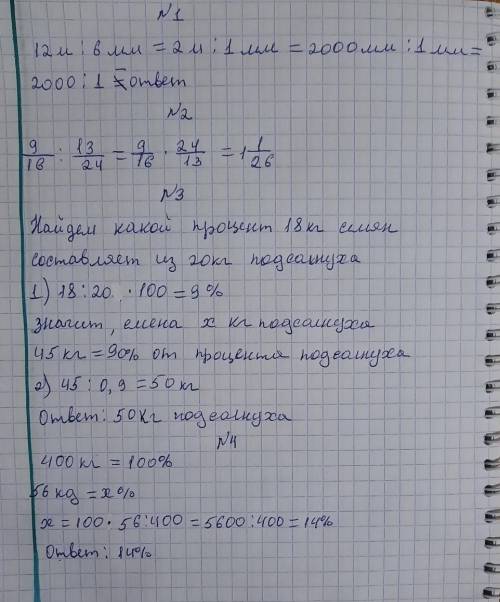 №1
12м : 6мм = 2м : 1мм = 2000мм : 1мм =
2000 : 1 – ответ
№2
9/16 : 13/24 = 9/16 · 24/13 = 1 1/26
№3
Найдем какой процент 18кг семян
составляет из 20кг подсолнуха
1) 18 : 20 · 100 = 9%
значит, семена x кг подсолнуха
45 кг = 90% от процента подсолнуха
2) 45 : 0,9 = 50 кг
Ответ: 50 кг подсолнуха
№4
400 кг = 100%
56 кg = x%
x = 100 · 56 : 400 = 5600 : 400 = 14%
Ответ: 14%